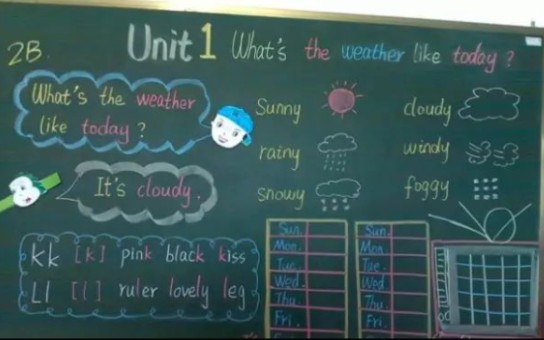 2B.
Unit 1 What's the weather like today ?
What's the weather
like today ?
It's cloudy.
Sunny
rainy
snowy
cloudy
windy
foggy
Kk [k] pink black kiss
Ll [l] ruler lovely leg
Sun.
Mon.
Tue.
Wed.
Thu.
Fri.
Sun.
Mon.
Tue.
Wed.
Thu.
Fri.